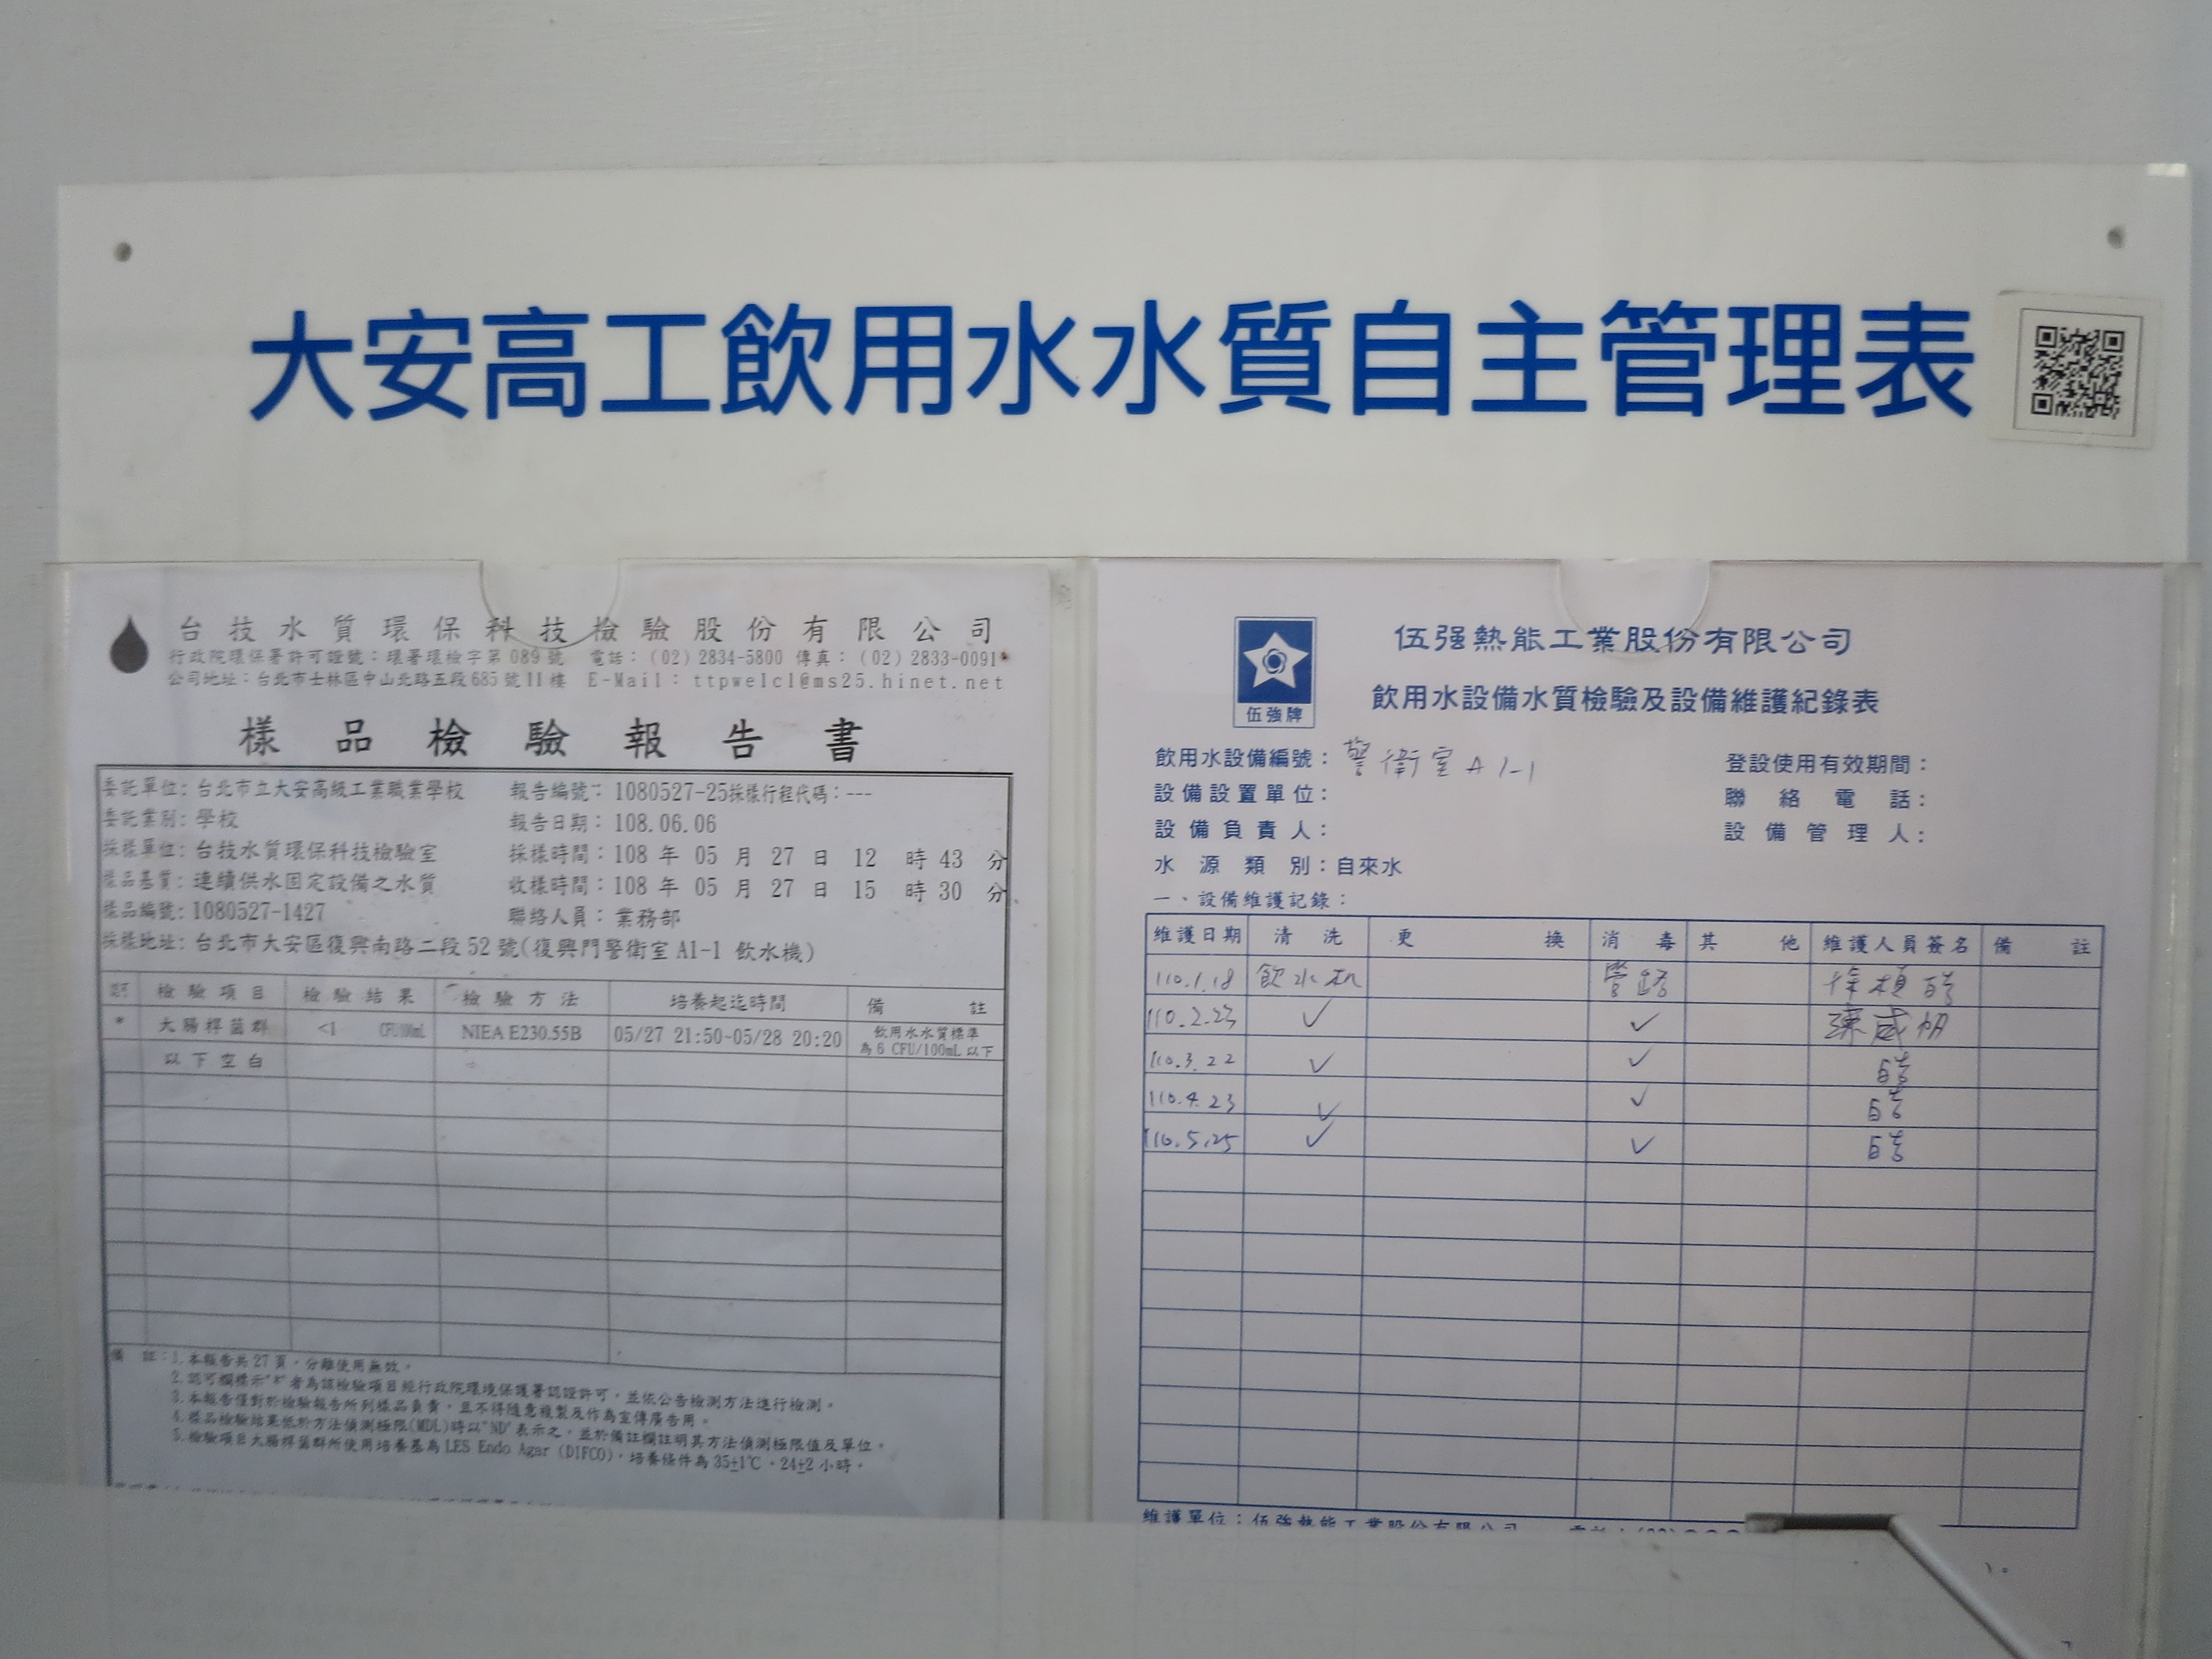 大安高工飲用水水質自主管理表
台技水質環保科技檢驗股份有限公司
行政院環保署許可證號：環署環檢字第 089 號 電話：(02) 2834-5800 傳真：(02) 2833-0091
公司地址：台北市士林區中山北路五段 685 號 11 樓 E-Mail：ttpwelcl@ms25.hinet.net
樣品檢驗報告書
委託單位：台北市立大安高級工業職業學校 報告編號：1080527-25採樣行程代碼：---
委託業別：學校 報告日期：108.06.06
採樣單位：台技水質環保科技檢驗室 採樣時間：108 年 05 月 27 日 12 時 43 分
樣品基質：連續供水固定設備之水質 收樣時間：108 年 05 月 27 日 15 時 30 分
樣品編號：1080527-1427 聯絡人員：業務部
採樣地址：台北市大安區復興南路二段 52 號(復興門警衛室 A1-1 飲水機)
檢驗項目 檢驗結果 檢驗方法 培養起迄時間 備註
* 大腸桿菌群 <1 CFU/100mL NIEA E230.55B 05/27 21:50~05/28 20:20 飲用水水質標準
為 6 CFU/100mL 以下
以下空白
備註：1.本報告共 27 頁，分離使用無效。
2.認可欄標示"*"者為該檢驗項目經行政院環境保護署認證許可，並依公告檢測方法進行檢測。
3.本報告僅對於檢驗報告所列樣品負責，且不得隨意複製及作為宣傳廣告用。
4.樣品檢驗結果低於方法偵測極限(MDL)時以"ND"表示之，並於備註欄註明其方法偵測極限值及單位。
5.檢驗項目大腸桿菌群所使用培養基為 LES Endo Agar (DIFCO)，培養條件為 35±1℃，24±2 小時。
伍強牌
伍强熱能工業股份有限公司
飲用水設備水質檢驗及設備維護紀錄表
飲用水設備編號：警衛室A1-1 登設使用有效期間：
設備設置單位： 聯絡電話：
設備負責人： 設備管理人：
水源類別：自來水
一、設備維護記錄：
維護日期 清洗 更換 消毒 其他 維護人員簽名 備註
110.1.18 飲水机 管路
110.2.23 ✓ ✓
110.3.22 ✓ ✓
110.4.23 ✓ ✓
110.5.25 ✓ ✓
維護單位：伍強熱能工業股份有限公司